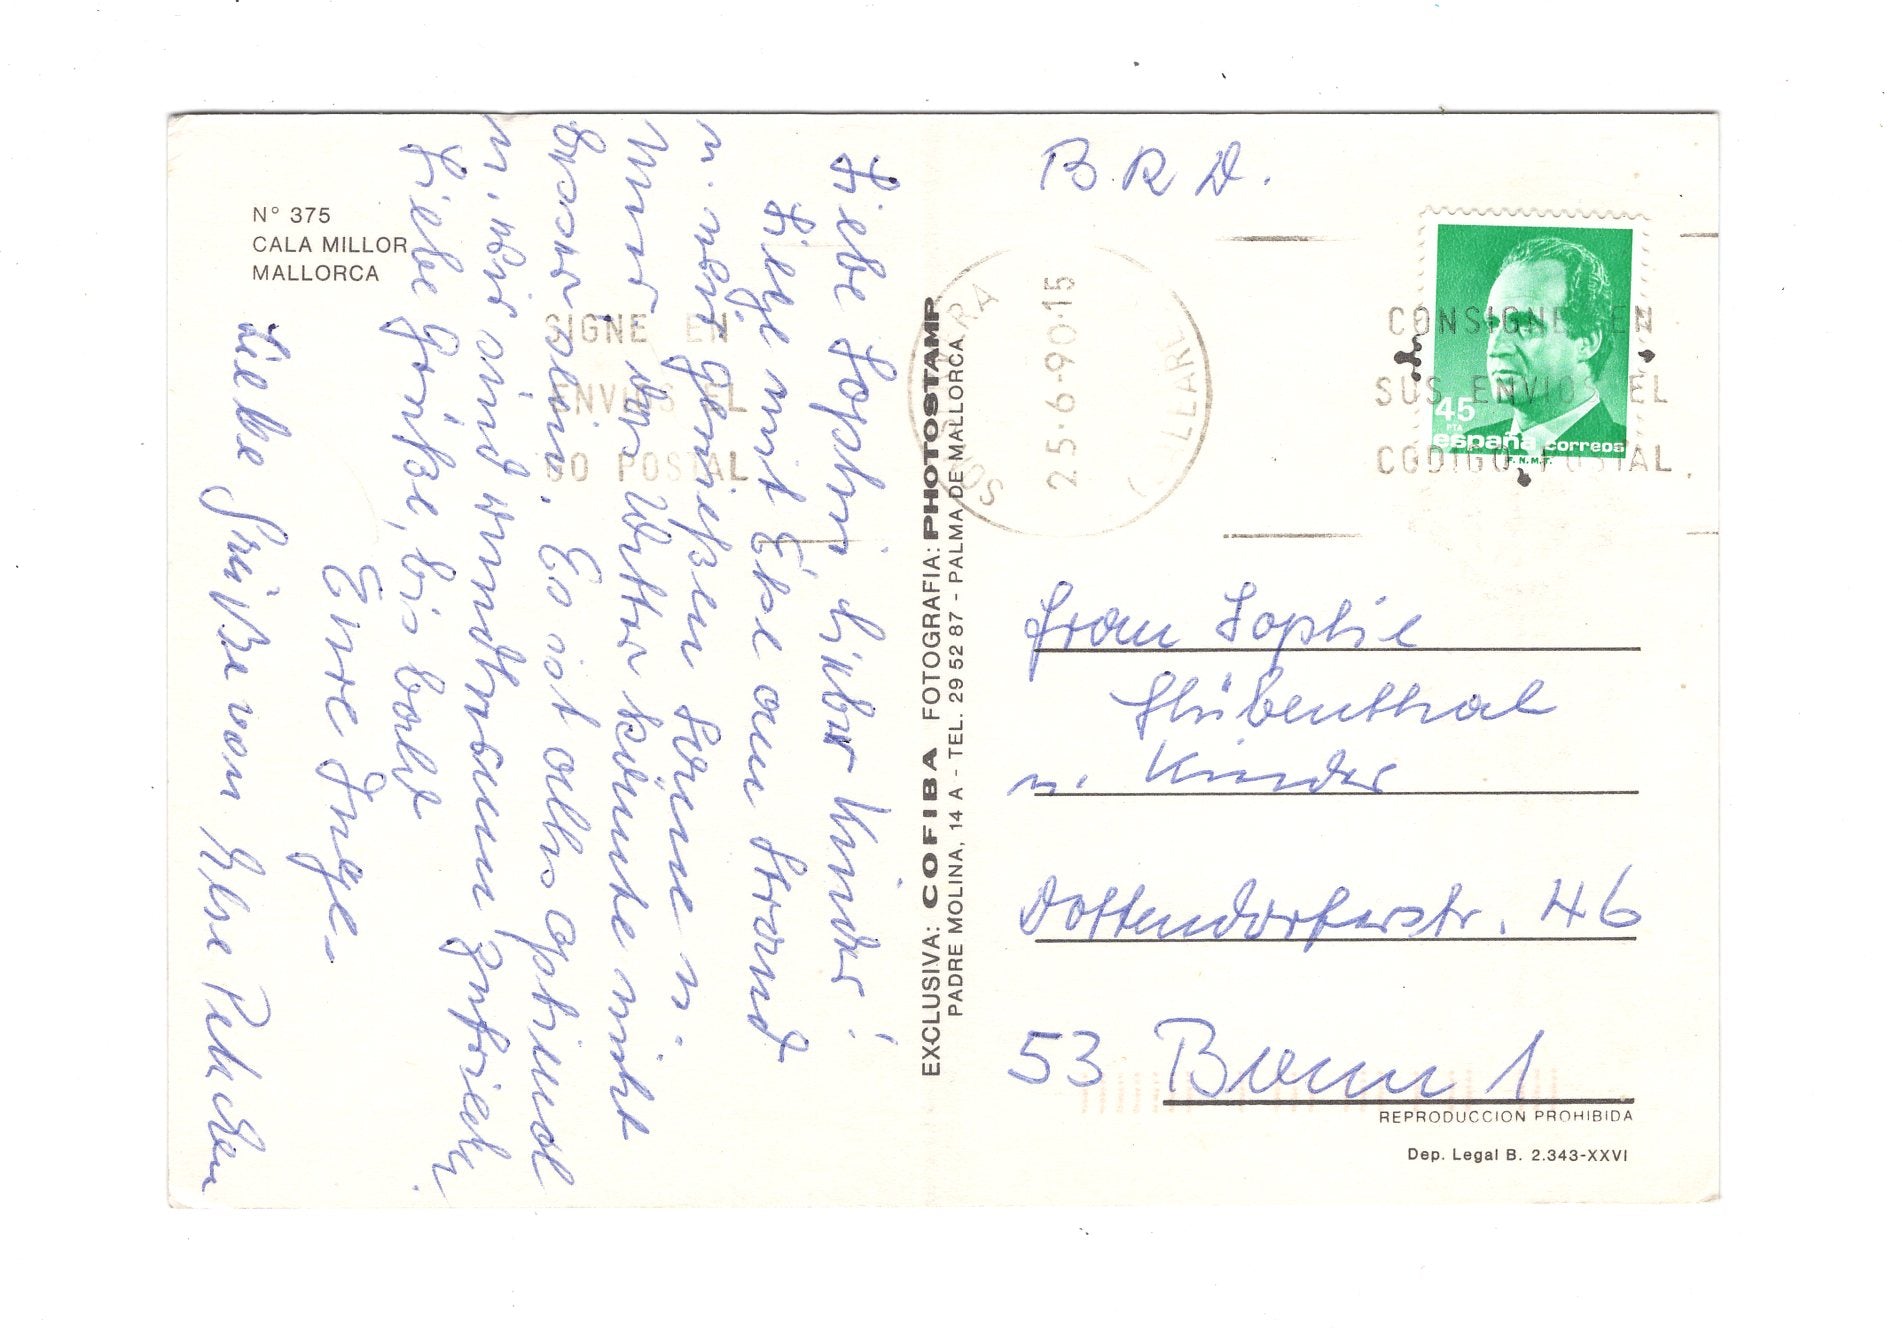 N° 375
CALA MILLOR
MALLORCA
Liebe Sophie, liebe Kinder!
Liege mit Else am Strand
u. wir genießen Sonne u.
Meer das Wetter könnte nicht
besser sein. Es ist alles optimal
u. wir sind rundherum zufrieden.
Liebe Grüße, bis bald
Eure Inge
Liebe Grüße von Else
EXCLUSIVA: COFIBA FOTOGRAFIA: PHOTOSTAMP
PADRE MOLINA, 14 A - TEL. 29 52 87 - PALMA DE MALLORCA
B.R.D.
25-6-90-15
CONSIGNE EN
SUS ENVIOS EL
CODIGO POSTAL
45
PTA
españa correos
F.N.M.T.
SIGNE EN
ENVIOS EL
GO POSTAL
Frau Sophie
Glübenthal
u. Kinder
Dottendorferstr. 46
53 Bonn 1
REPRODUCCION PROHIBIDA
Dep. Legal B. 2.343-XXVI